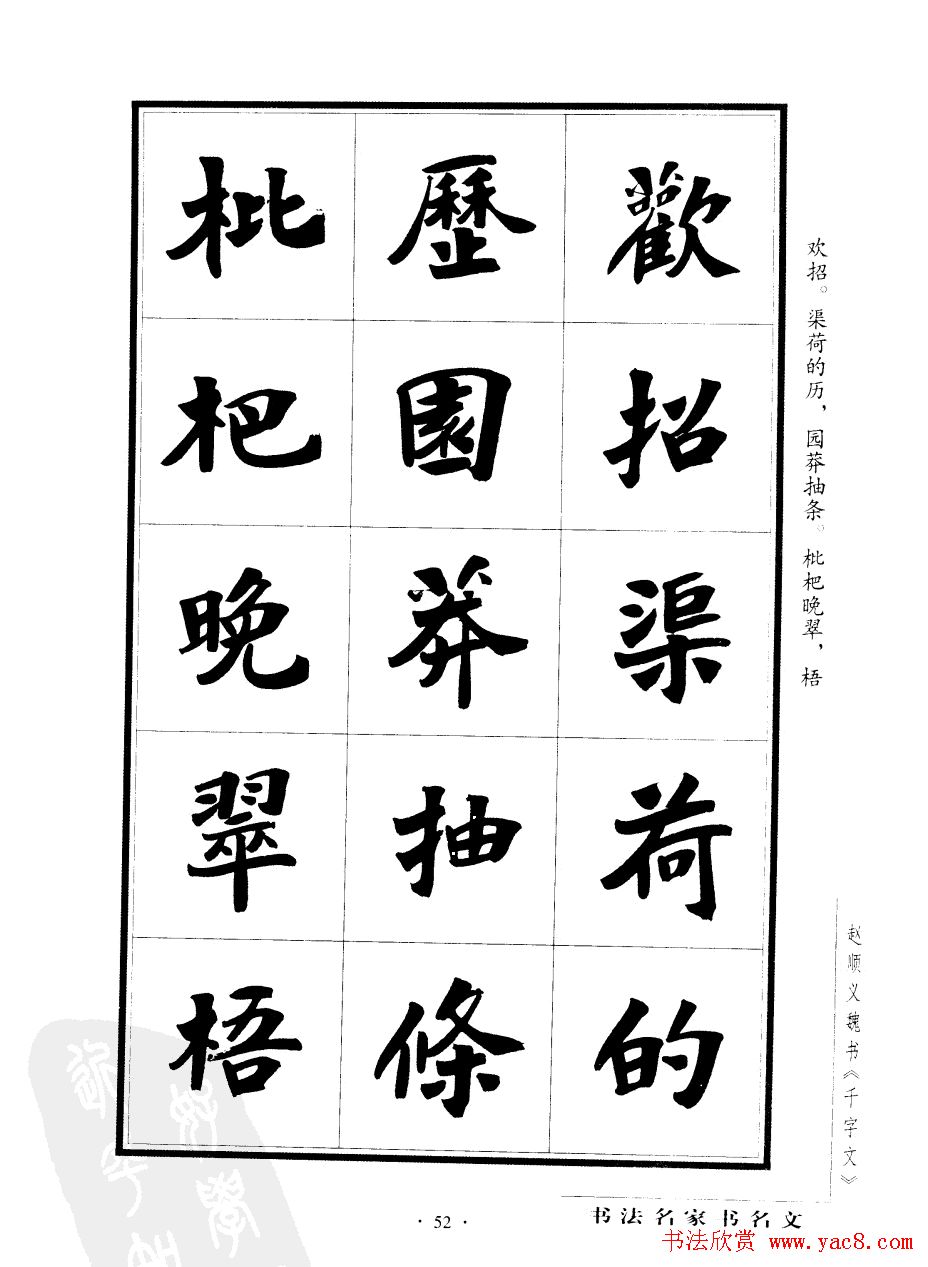 歡招渠荷的
歷園莽抽條
枇杷晚翠梧
欢招。渠荷的历，园莽抽条。枇杷晚翠，梧
赵顺义魏书《千字文》
· 52 ·
书法名家书名文
书法欣赏 www.yac8.com